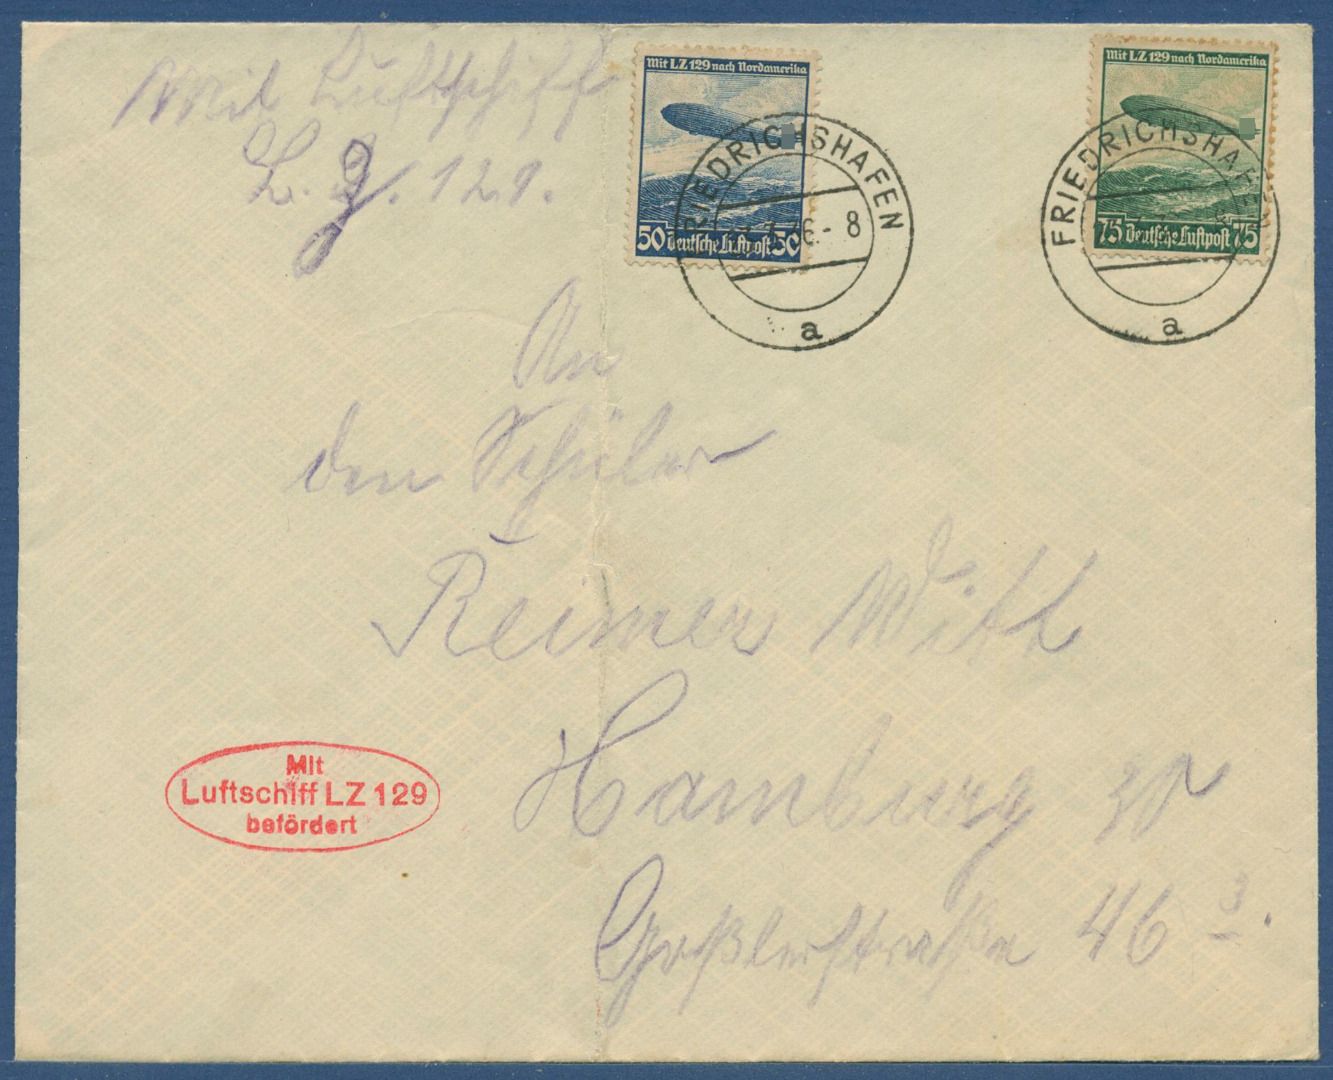 Mit Luftschiff
L. Z. 129.
Mit LZ 129 nach Nordamerika
50 Deutsche Luftpost 50
FRIEDRICHSHAFEN
6.- 8
a
Mit LZ 129 nach Nordamerika
75 Deutsche Luftpost 75
FRIEDRICHSHAFEN
a
An
den Schüler
Reimer Witt
Hamburg
Mit
Luftschiff LZ 129
befördert
46 3.